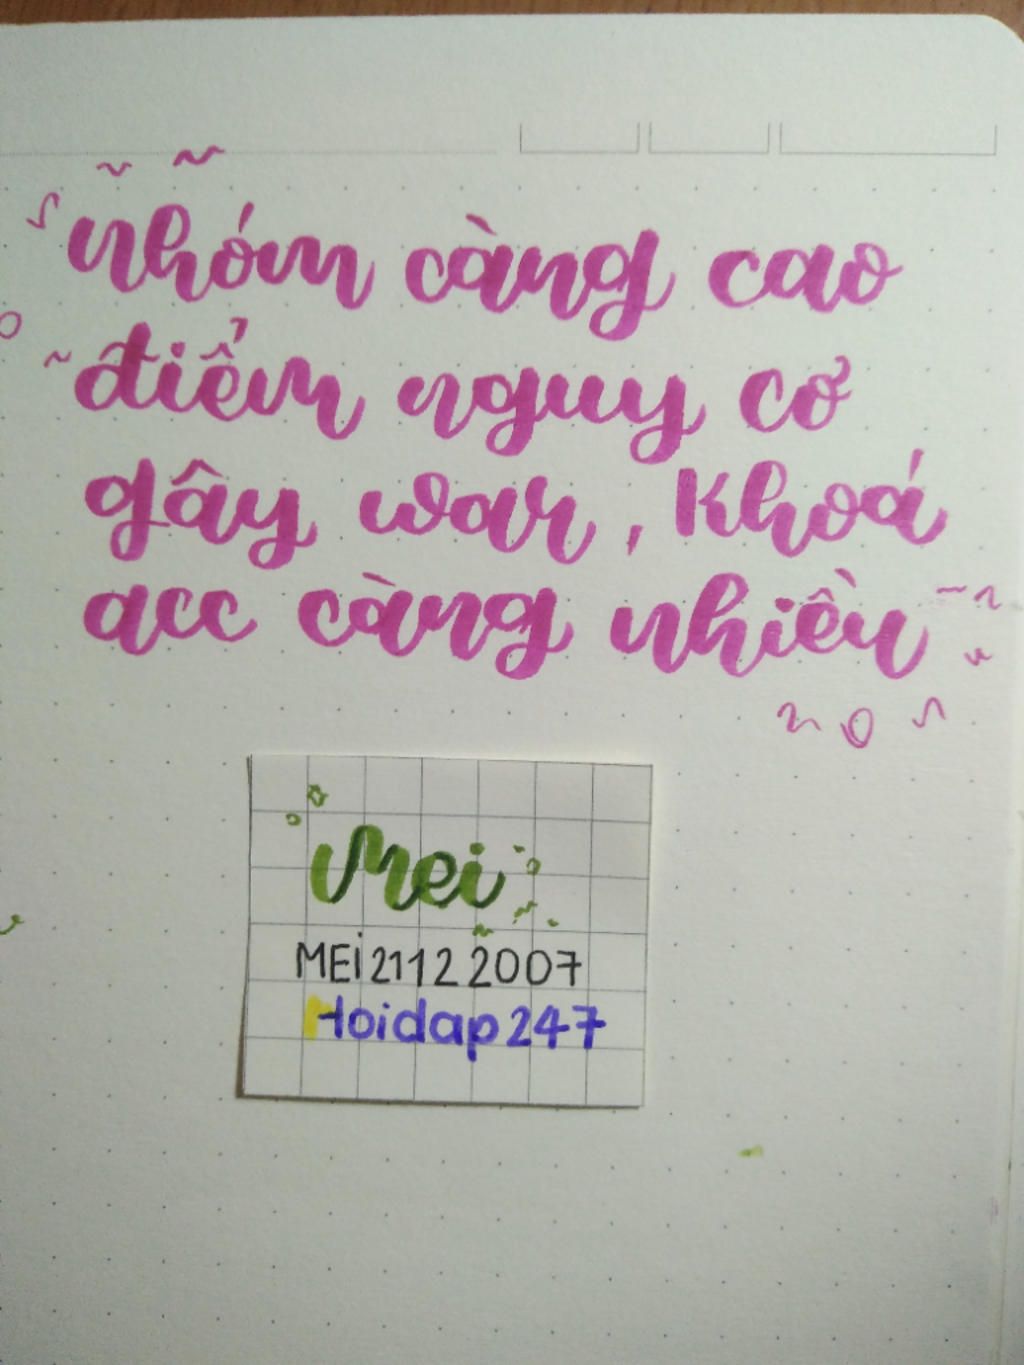 nhóm càng cao
điểm nguy cơ
gây war, Khoá
acc càng nhiều
Mei
MEi21122007
Hoidap247